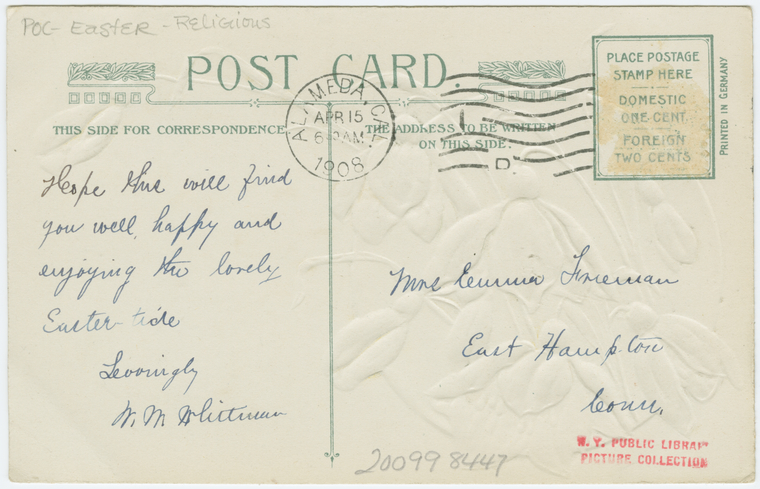 POC - Easter - Religious
POST CARD
THIS SIDE FOR CORRESPONDENCE
THE ADDRESS TO BE WRITTEN
ON THIS SIDE.
ALAMEDA, CAL.
APR 15
AM
1908
D
PLACE POSTAGE
STAMP HERE
DOMESTIC
ONE CENT
FOREIGN
TWO CENTS
PRINTED IN GERMANY
Hope this will find
you well, happy and
enjoying the lovely
Easter-tide
Lovingly
W. M. Whittman
Mrs Emma Freeman
East Hampton
Conn.
N. Y. PUBLIC LIBRARY
PICTURE COLLECTION
20099 8447